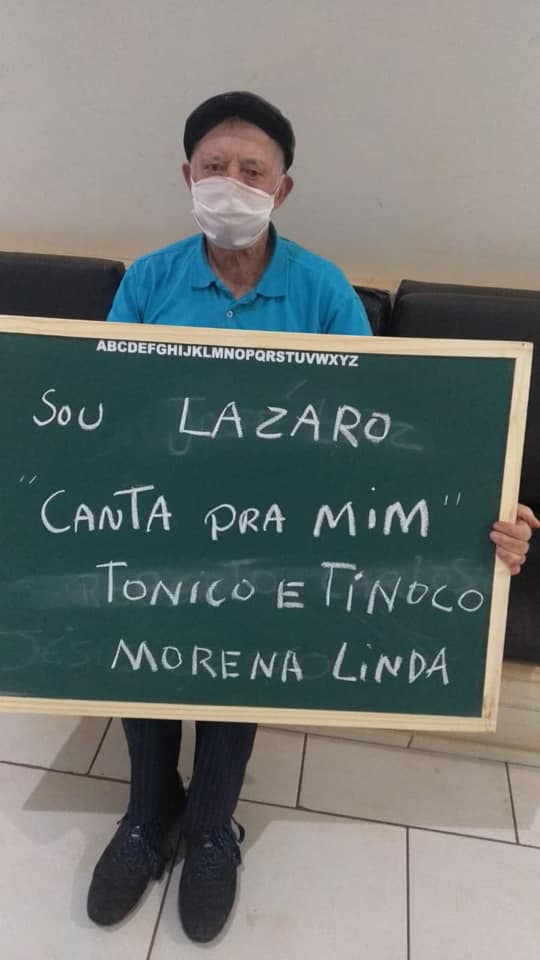 ABCDEFGHIJKLMNOPQRSTUVWXYZ
SOU LAZARO
"CANTA PRA MIM"
TONICO E TINOCO
MORENA LINDA